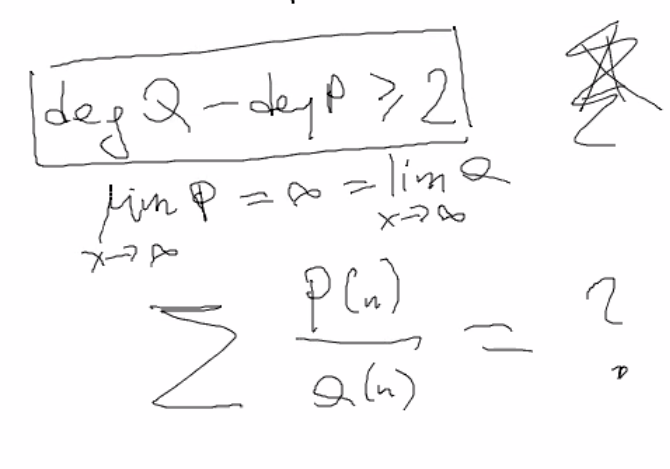 deg Q - deg P ≥ 2
lim P = ∞ = lim Q
x→∞ x→∞
∑ P(n)/Q(n) = ?